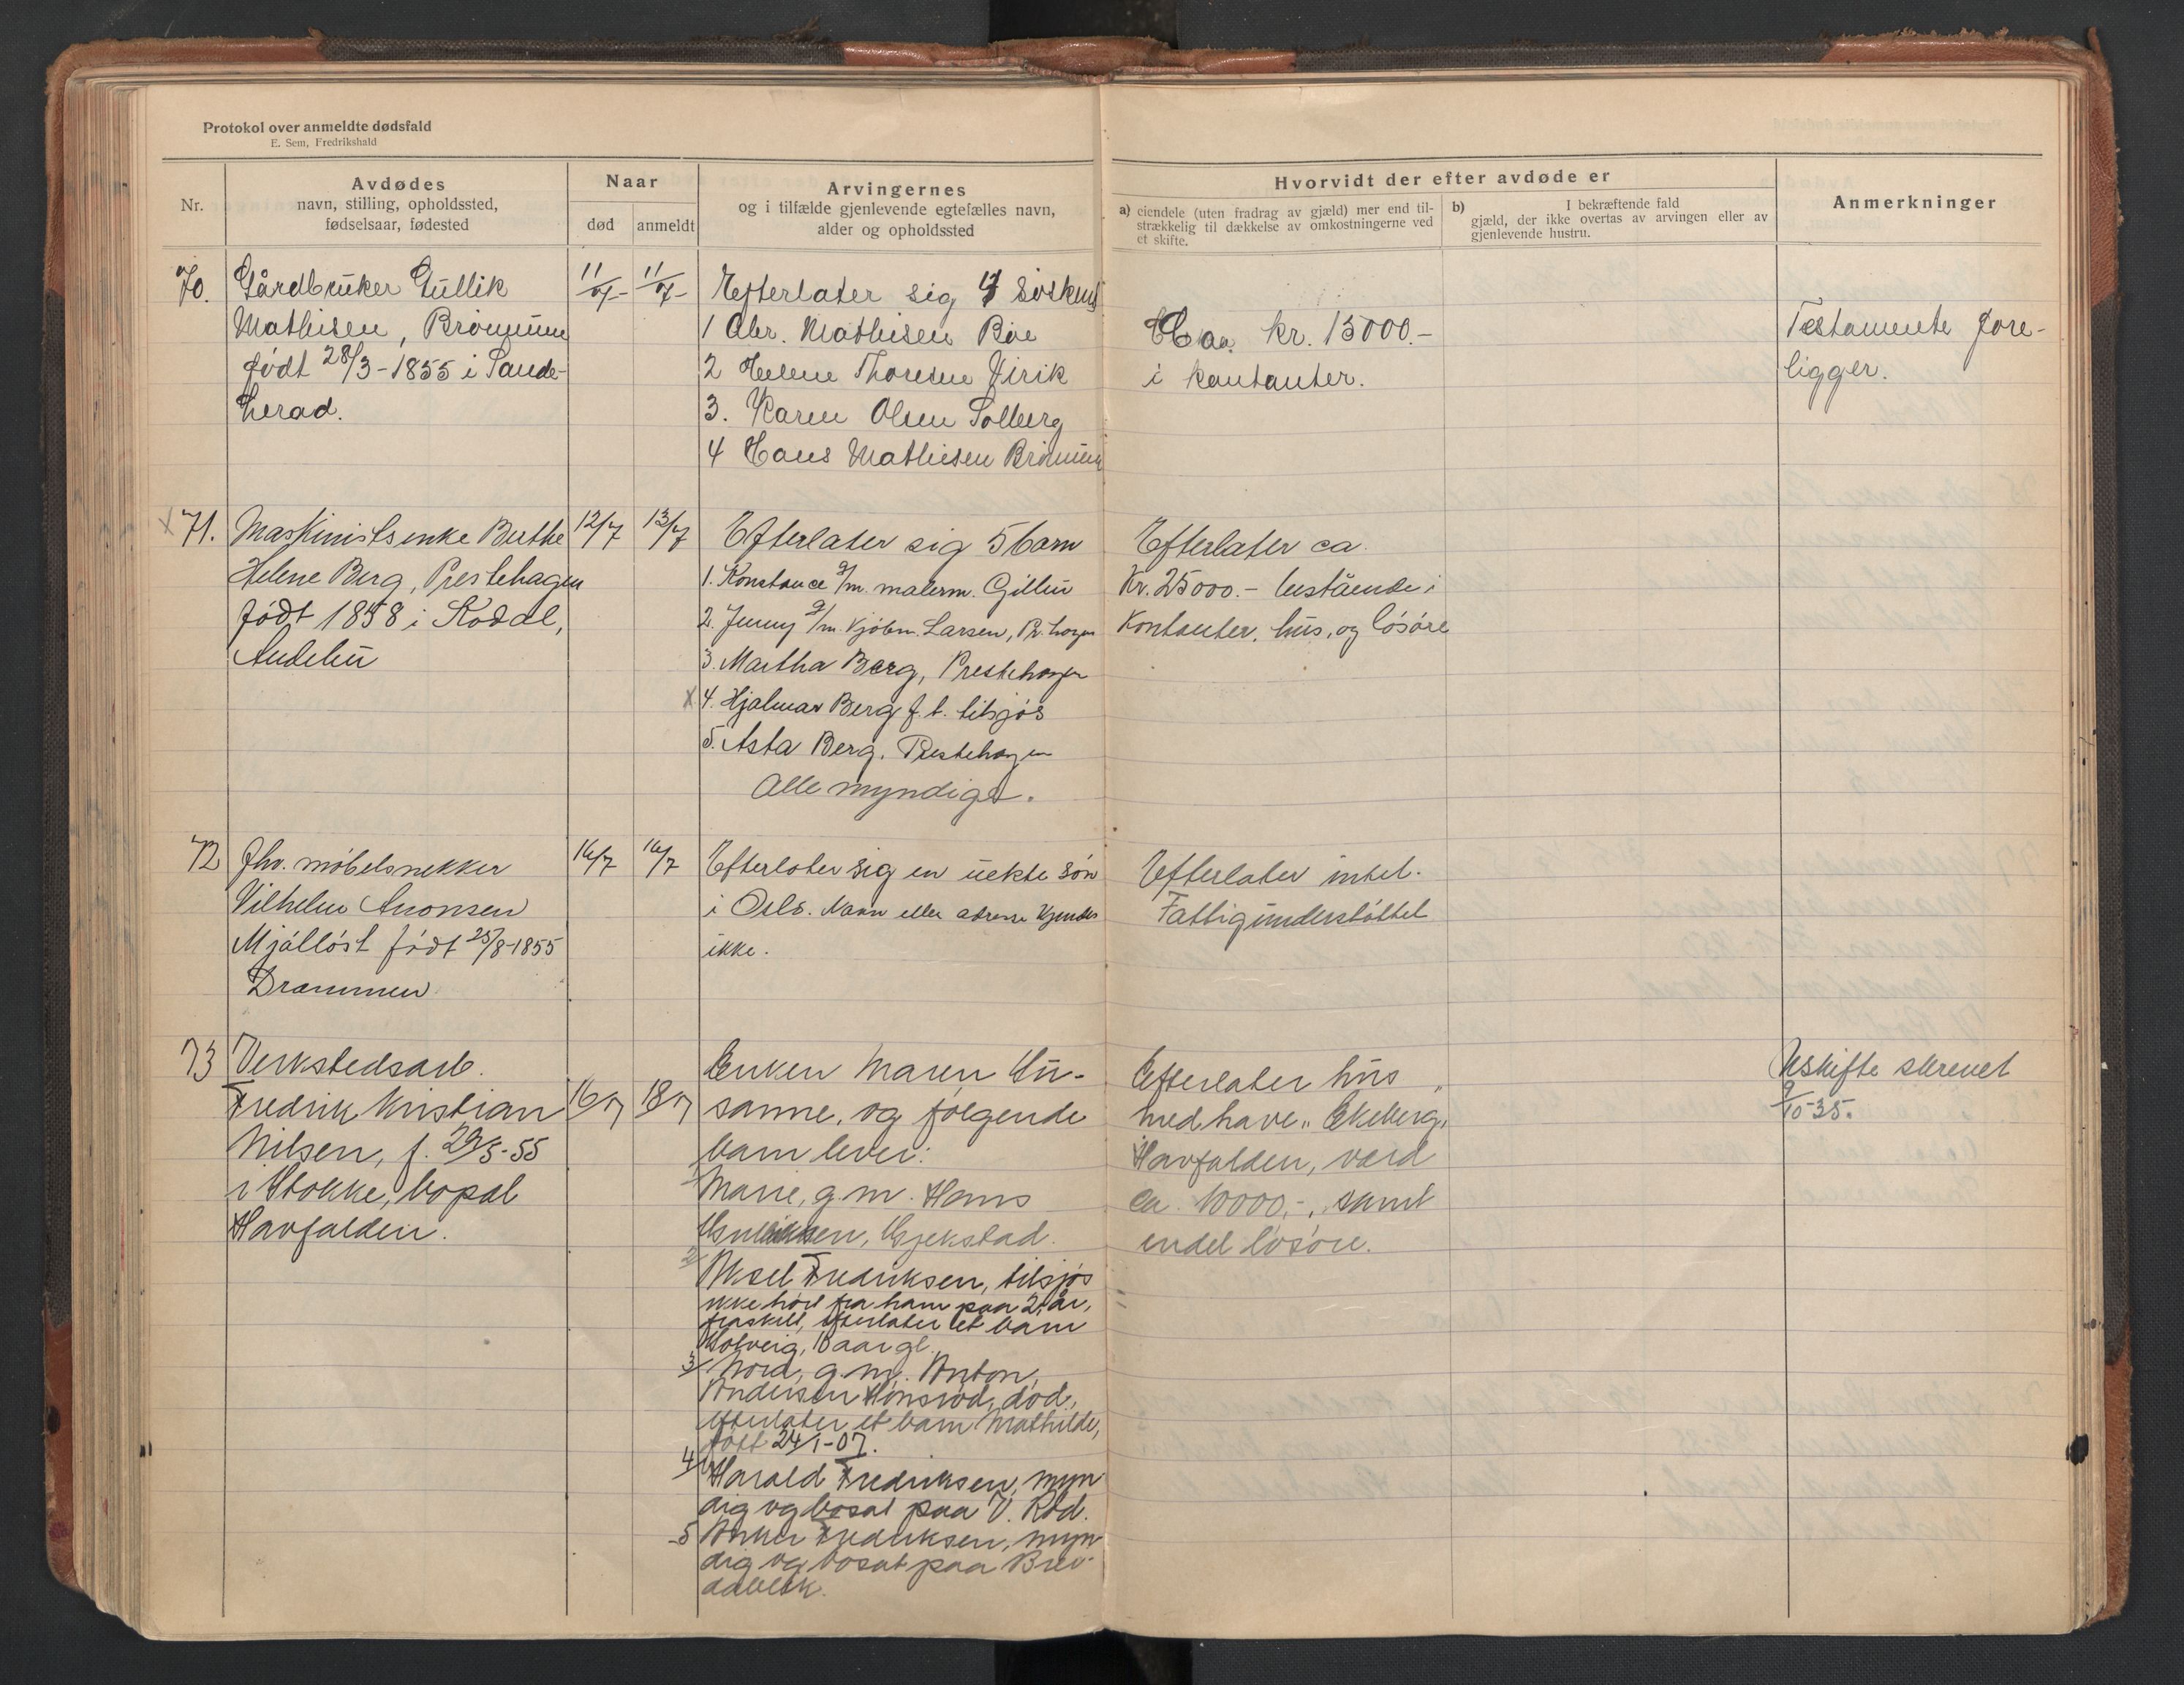 Protokol over anmeldte dødsfald
E. Sem, Fredrikshald
Nr.
Avdødes
navn, stilling, opholdssted,
fødselsaar, fødested
Naar
død
anmeldt
Arvingernes
og i tilfælde gjenlevende egtefælles navn,
alder og opholdssted
Hvorvidt der efter avdøde er
a) eiendele (uten fradrag av gjæld) mer end til-
strækkelig til dækkelse av omkostningerne ved
et skifte.
b) I bekræftende fald
gjæld, der ikke overtas av arvingen eller av
gjenlevende hustru.
Anmerkninger
70.
Gårdbruker Gullik
Mathisen, Brönnum
födt 28/3-1855 i Sande-
herad.
11/7-
11/7-
Efterlater sig 4 söskend
1 Abr. Mathisen Böe
2 Helene Thoresen Virik
3. Karen Olsen Solberg
4 Hans Mathisen Brönnum
Ca. kr. 15000.-
i kontanter.
Testamente fore-
ligger.
x 71.
Maskinistenke Berthe
Helene Berg, Prestehagen
födt 1858 i Kodal,
Andebu
12/7
13/7
Efterlater sig 5 barn
1. Konstance g/m. malerm. Gillu
2. Jenny g/m. kjöbm. Larsen, Pr. hagen
3. Martha Berg, Prestehagen
x 4. Hjalmar Berg f. t. tilsjös
5. Asta Berg, Prestehagen
Alle myndige.
Efterlater ca.
Kr. 25000.- bestående i
Kontanter, hus, og lösöre
72
Fhv. möbelsnekker
Vilhelm Anonsen
Mjällöst födt 25/8-1855
Drammen
16/7
16/7
Efterlater sig en uekte sön
i Oslo. Navn eller adresse kjendes
ikke.
Efterlater intet.
Fattigunderstöttet
73
Verkstedsarb.
Fredrik Kristian
Nilsen, f. 29/5-55
i Stokke, bopæl
Havfalden.
16/7
18/7
Enken Maren Su-
sanne, og følgende
barn lever:
Marie, g.m. Hans
Henriksen, Gjekstad.
2/ Aksel Fredriksen, tilsjøs
ikke hørt fra ham paa 2 år,
fraskilt, efterlater et barn
Solveig, aar gl.
3/ Nora, g.m. Anton
Andersen Hønsrød, død,
efterlater et barn Mathilde,
født 24/1-07.
4/ Harald Fredriksen, myn
dig og bosat paa V. Rød.
5 Anker Fredriksen, myn
dig og bosat paa Brev-
dablik.
Efterlater hus
med have „Ekeberg„
Havfalden, værd
ca. 10000,-, samt
endel løsøre.
Uskifte skrevet
9/10-35.